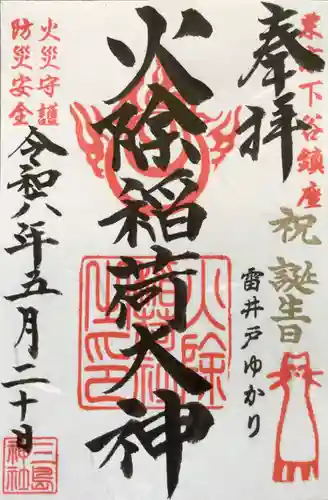 東京下谷鎮座
奉拝
祝誕生日
雷井戸ゆかり
火除稲荷大神
火災守護
防災安全
令和八年五月二十日
三島神社